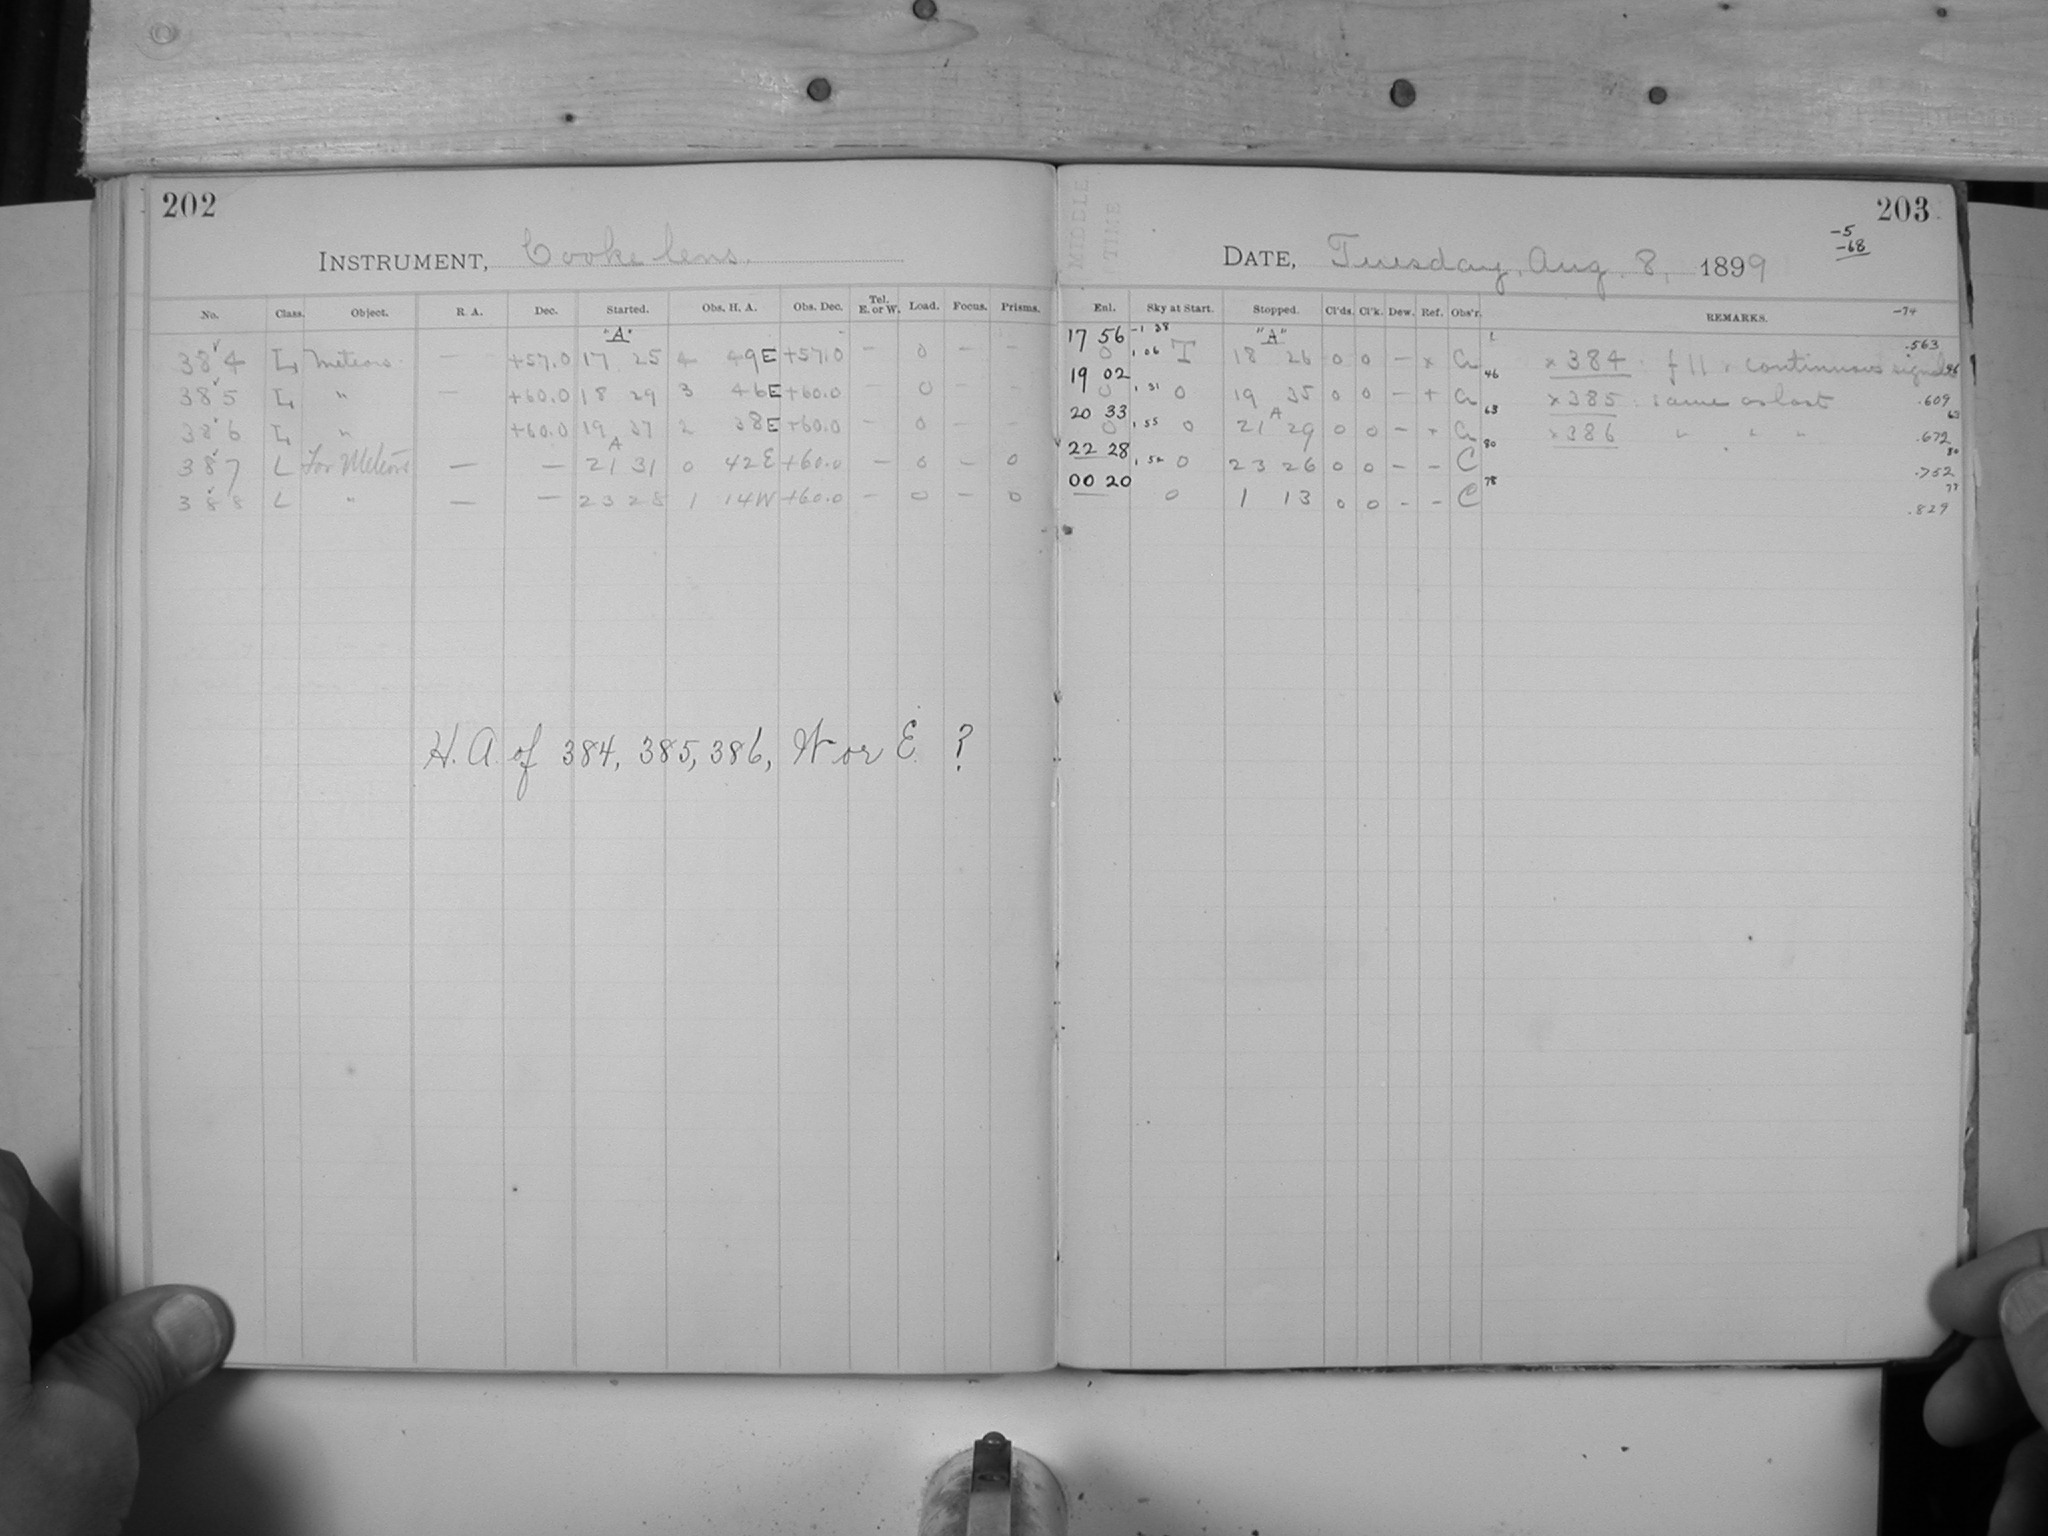 202
INSTRUMENT, Cooke lens.
No. Class. Object. R. A. Dec. Started. Obs. H. A. Obs. Dec. Tel. E. or W. Load. Focus. Prisms.
"A"
384 L Meteors — +57.0 17 25 4 49E +57.0 — 0 — —
385 L " — +60.0 18 29 3 46E +60.0 — 0 — —
386 L " +60.0 19 37 2 38E +60.0 — 0 — —
A
387 L For Meteors — — 21 31 0 42E +60.0 — 0 — 0
388 L " — — 23 28 1 14W +60.0 — 0 — 0
H. A. of 384, 385, 386, W or E ?
203
-5
-68
MIDDLE
TIME
DATE, Tuesday, Aug. 8, 1899
Enl. Sky at Start. Stopped. Cl'ds. Cl'k. Dew. Ref. Obs'r. REMARKS. -74
17 56 -1 38 "A"
.563
0 1 06 T 18 26 0 0 — x × 384. continuous signals 46
19 02 46
0 1 31 0 19 35 0 0 — + × 385. same as last .609
20 33 A 63 63
0 1 55 0 21 29 0 0 — + × 386 " " " .672
22 28 80 80
1 52 0 23 26 0 0 — — C .752
00 20 78 77
0 1 13 0 0 - - C .829